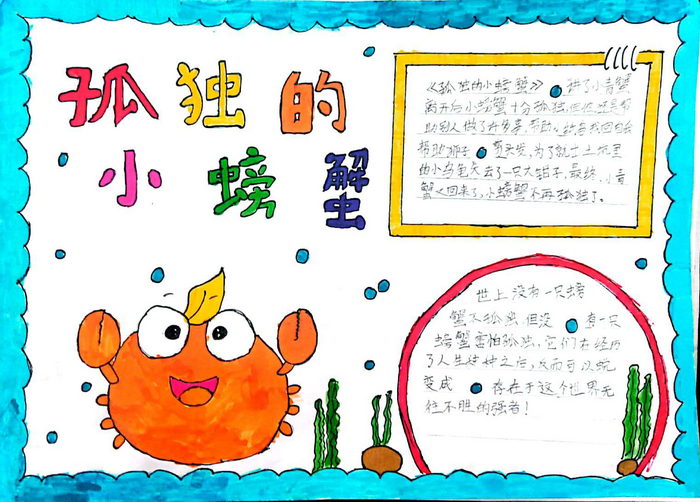 孤独的
小螃蟹
《孤独的小螃蟹》讲了小青蟹
离开后小螃蟹十分孤独,但他还是帮
助别人做了许多事,帮助
帮助狮子
的小鸟 失去了一只大钳子,最终,小青
蟹又回来了,小螃蟹不再孤独了。
世上没有一只螃
蟹不孤独,但没有一只
螃蟹害怕孤独,它们在经历
了人生 之后,反而可以
变成 存在于这个世界无
往不胜的强者!